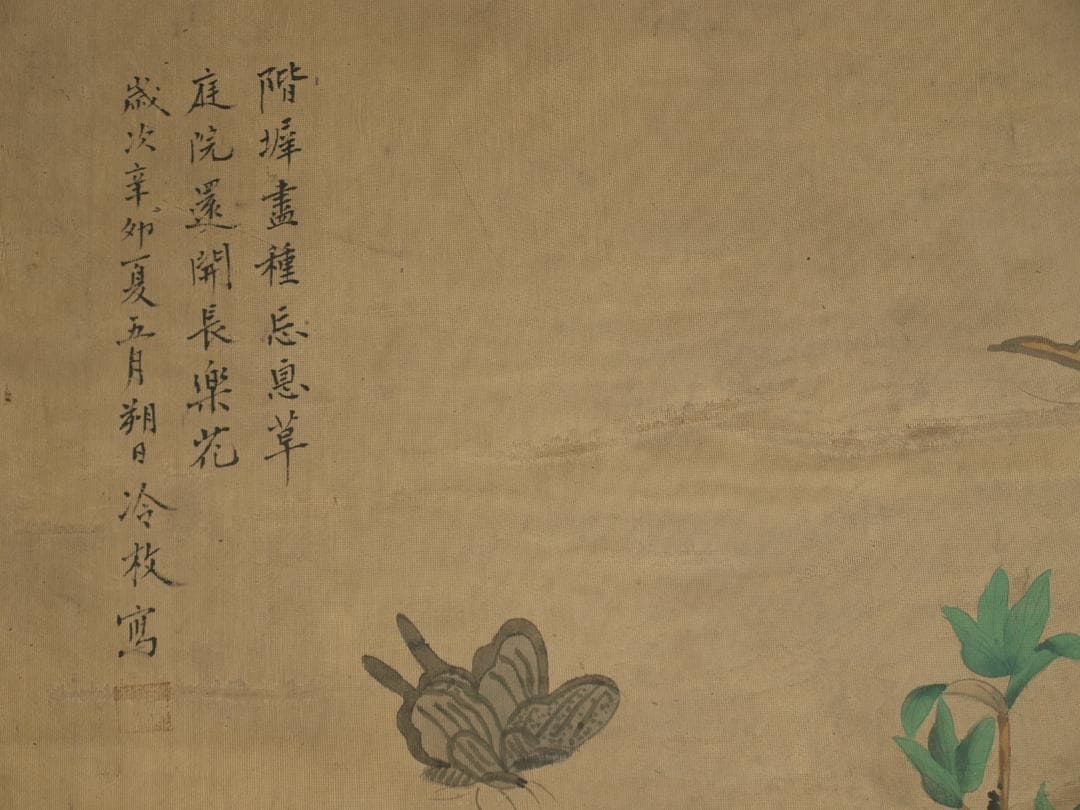 階墀盡種忘息草
庭院還開長樂花
歲次辛卯夏五月朔日冷枚寫